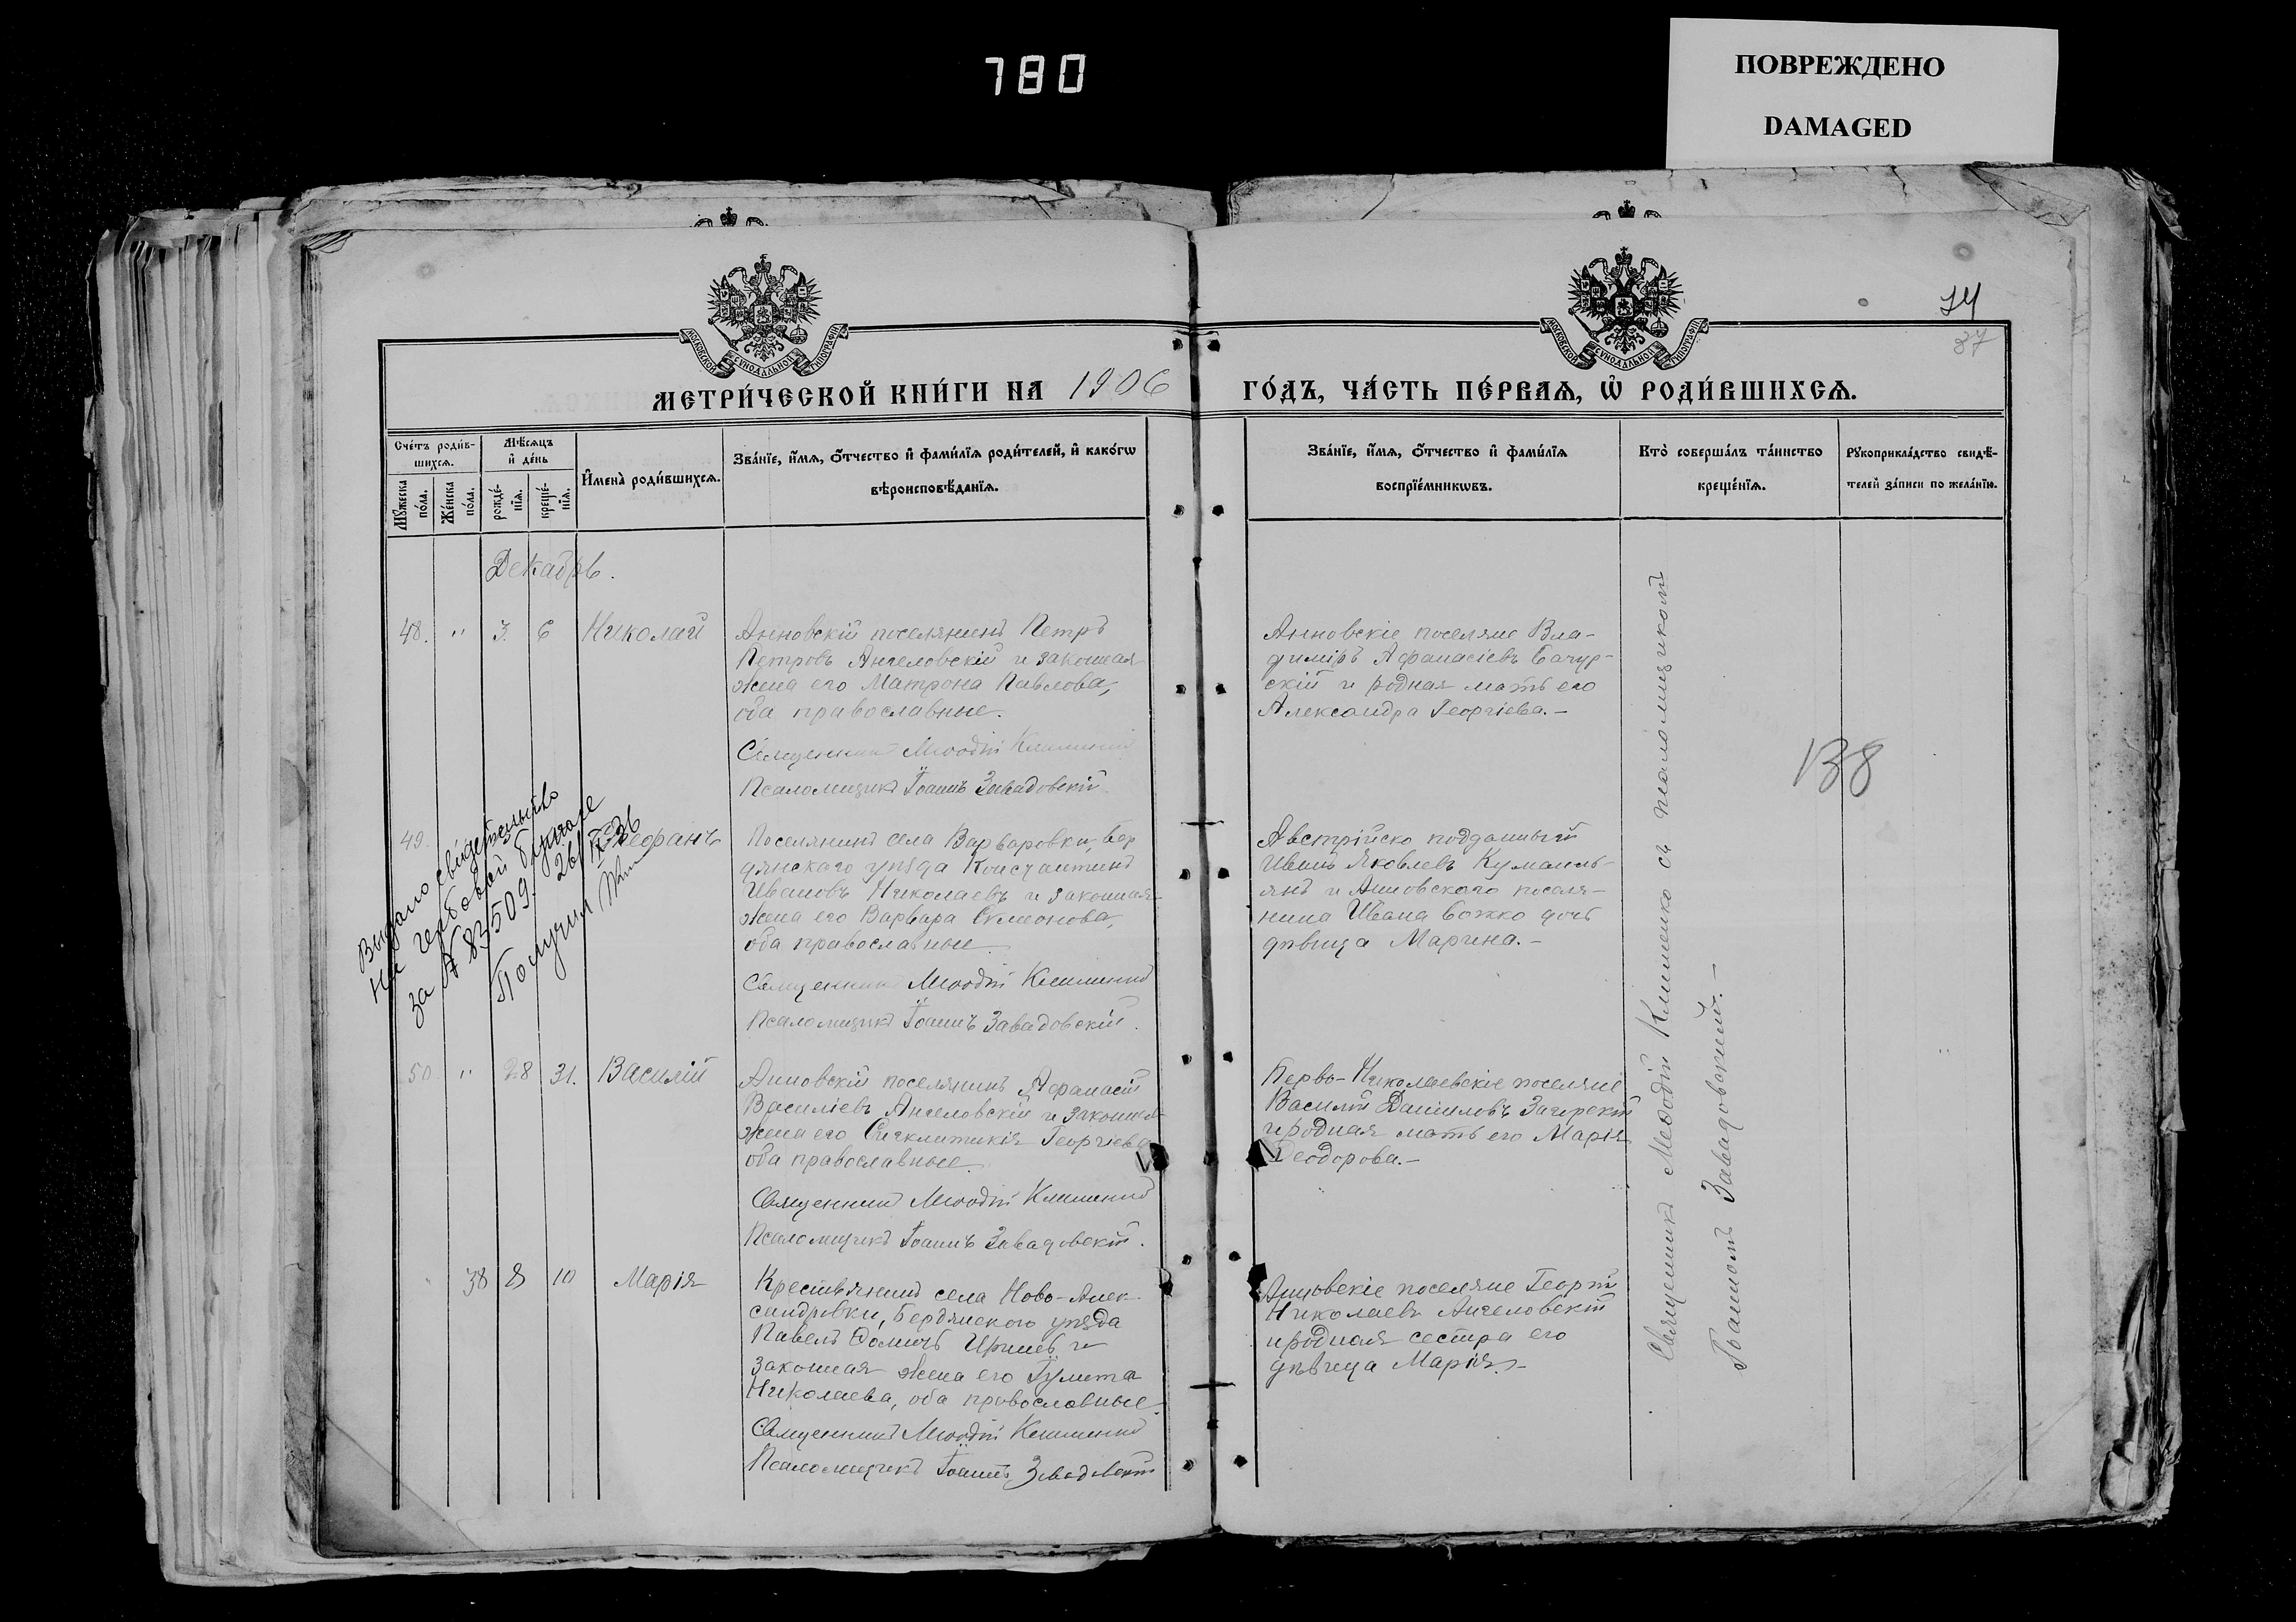 780
ПОВРЕЖДЕНО
DAMAGED
74
37
МОСКОВСКОЙ СѴНОДАЛЬНОЙ ТИПОГРАФІИ
МОСКОВСКОЙ СѴНОДАЛЬНОЙ ТИПОГРАФІИ
МЕТРИ́ЧЕСКОЙ КНИ́ГИ НА 1906 ГО́ДЪ, ЧА́СТЬ ПЕ́РВАѦ, Ѡ҆ РОДИ́ВШИХСѦ.
Сче́тъ роди́в-
шихсѧ.
Мꙋ́жеска по́ла.
Же́нска по́ла.
Мѣ́сѧцъ
и҆ де́нь
рожде́-
нїѧ.
креще́-
нїѧ.
И҆мена̀ роди́вшихсѧ.
Зва́нїе, и҆́мѧ, ѻ҆́тчество и҆ фамѝлїѧ роди́телей, и҆ како́гѡ
вѣроисповѣ́данїѧ.
Зва́нїе, и҆́мѧ, ѻ҆́тчество и҆ фами́лїѧ
воспрїе́мникѡвъ.
Кто̀ соверша́лъ та́инство
креще́нїѧ.
Рꙋкоприкла́дство свидѣ́-
телей за́писи по жела́нїю.
Декабрь.
48. " 3. 6 Николай
Анновскій поселянинъ Петръ
Петровъ Ангеловскій и законная
жена его Матрона Павлова,
оба православные.
Священникъ Меѳодій Клименко
Псаломщикъ Іоаннъ Завадовскій.
Анновскіе поселяне Вла-
диміръ Афанасіевъ Бачур-
скій и родная мать его
Александра Георгіева.-
138
49. Ѳеофанъ
Выдано свидетельство
на гербовой бумаге
за № 83509. 26/IX-36
Получил
Поселянинъ села Варваровки, Бер
дянскаго уѣзда Константинъ
Ивановъ Николаевъ и законная
жена его Варвара Симеонова,
оба православные
Священникъ Меѳодій Клименко
Псаломщикъ Іоаннъ Завадовскій.
Австрійско подданный
Иванъ Яковлевъ
и Анновскаго поселя-
нина Ивана Божко дочь
дѣвица Марина.-
50. " 28 31. Василій
Анновскій поселянинъ Афанасій
Василіевъ Ангеловскій и законная
жена его Сигклитикія Георгіева
оба православные.
Священникъ Меѳодій Клименко
Псаломщикъ Іоаннъ Завадовскій.
Перво-Николаевскіе поселяне
Василій Даніиловъ Загорскій
и родная мать его Марія
Ѳеодорова.-
38 8 10 Марія
Крестьянинъ села Ново-Алек-
сандровки, Бердянскаго уѣзда
Павелъ Ѳомичъ и
законная жена его Іулита
Николаева, оба православные.
Священникъ Меѳодій Клименко
Псаломщикъ Іоаннъ Завадовскій
Анновскіе поселяне Георгій
Николаевъ Ангеловскій
и родная сестра его
дѣвица Марія.-
Священникъ Меѳодій Клименко съ псаломщикомъ
Іоанномъ Завадовскимъ.-